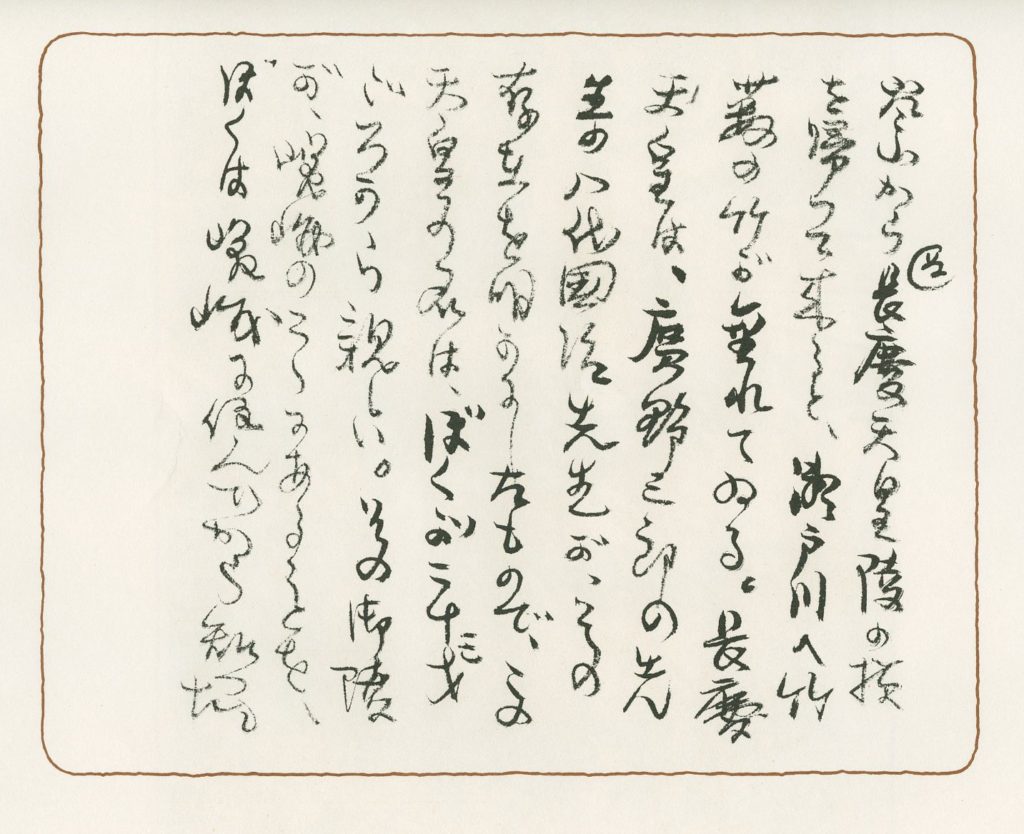 嵐山から長慶天皇陵の横
を帰つて来ると、瀬戸川へ竹
藪の竹が垂れてゐる。長慶
天皇は、廣野三郎の先
生の八代國治先生が、その
存在を明かにしたもので、この
天皇の名は、ぼくが二十三才
ごろから親しい。その御陵
が、嵯峨のこゝにあることを、
ぼくは嵯峨に住んでから知